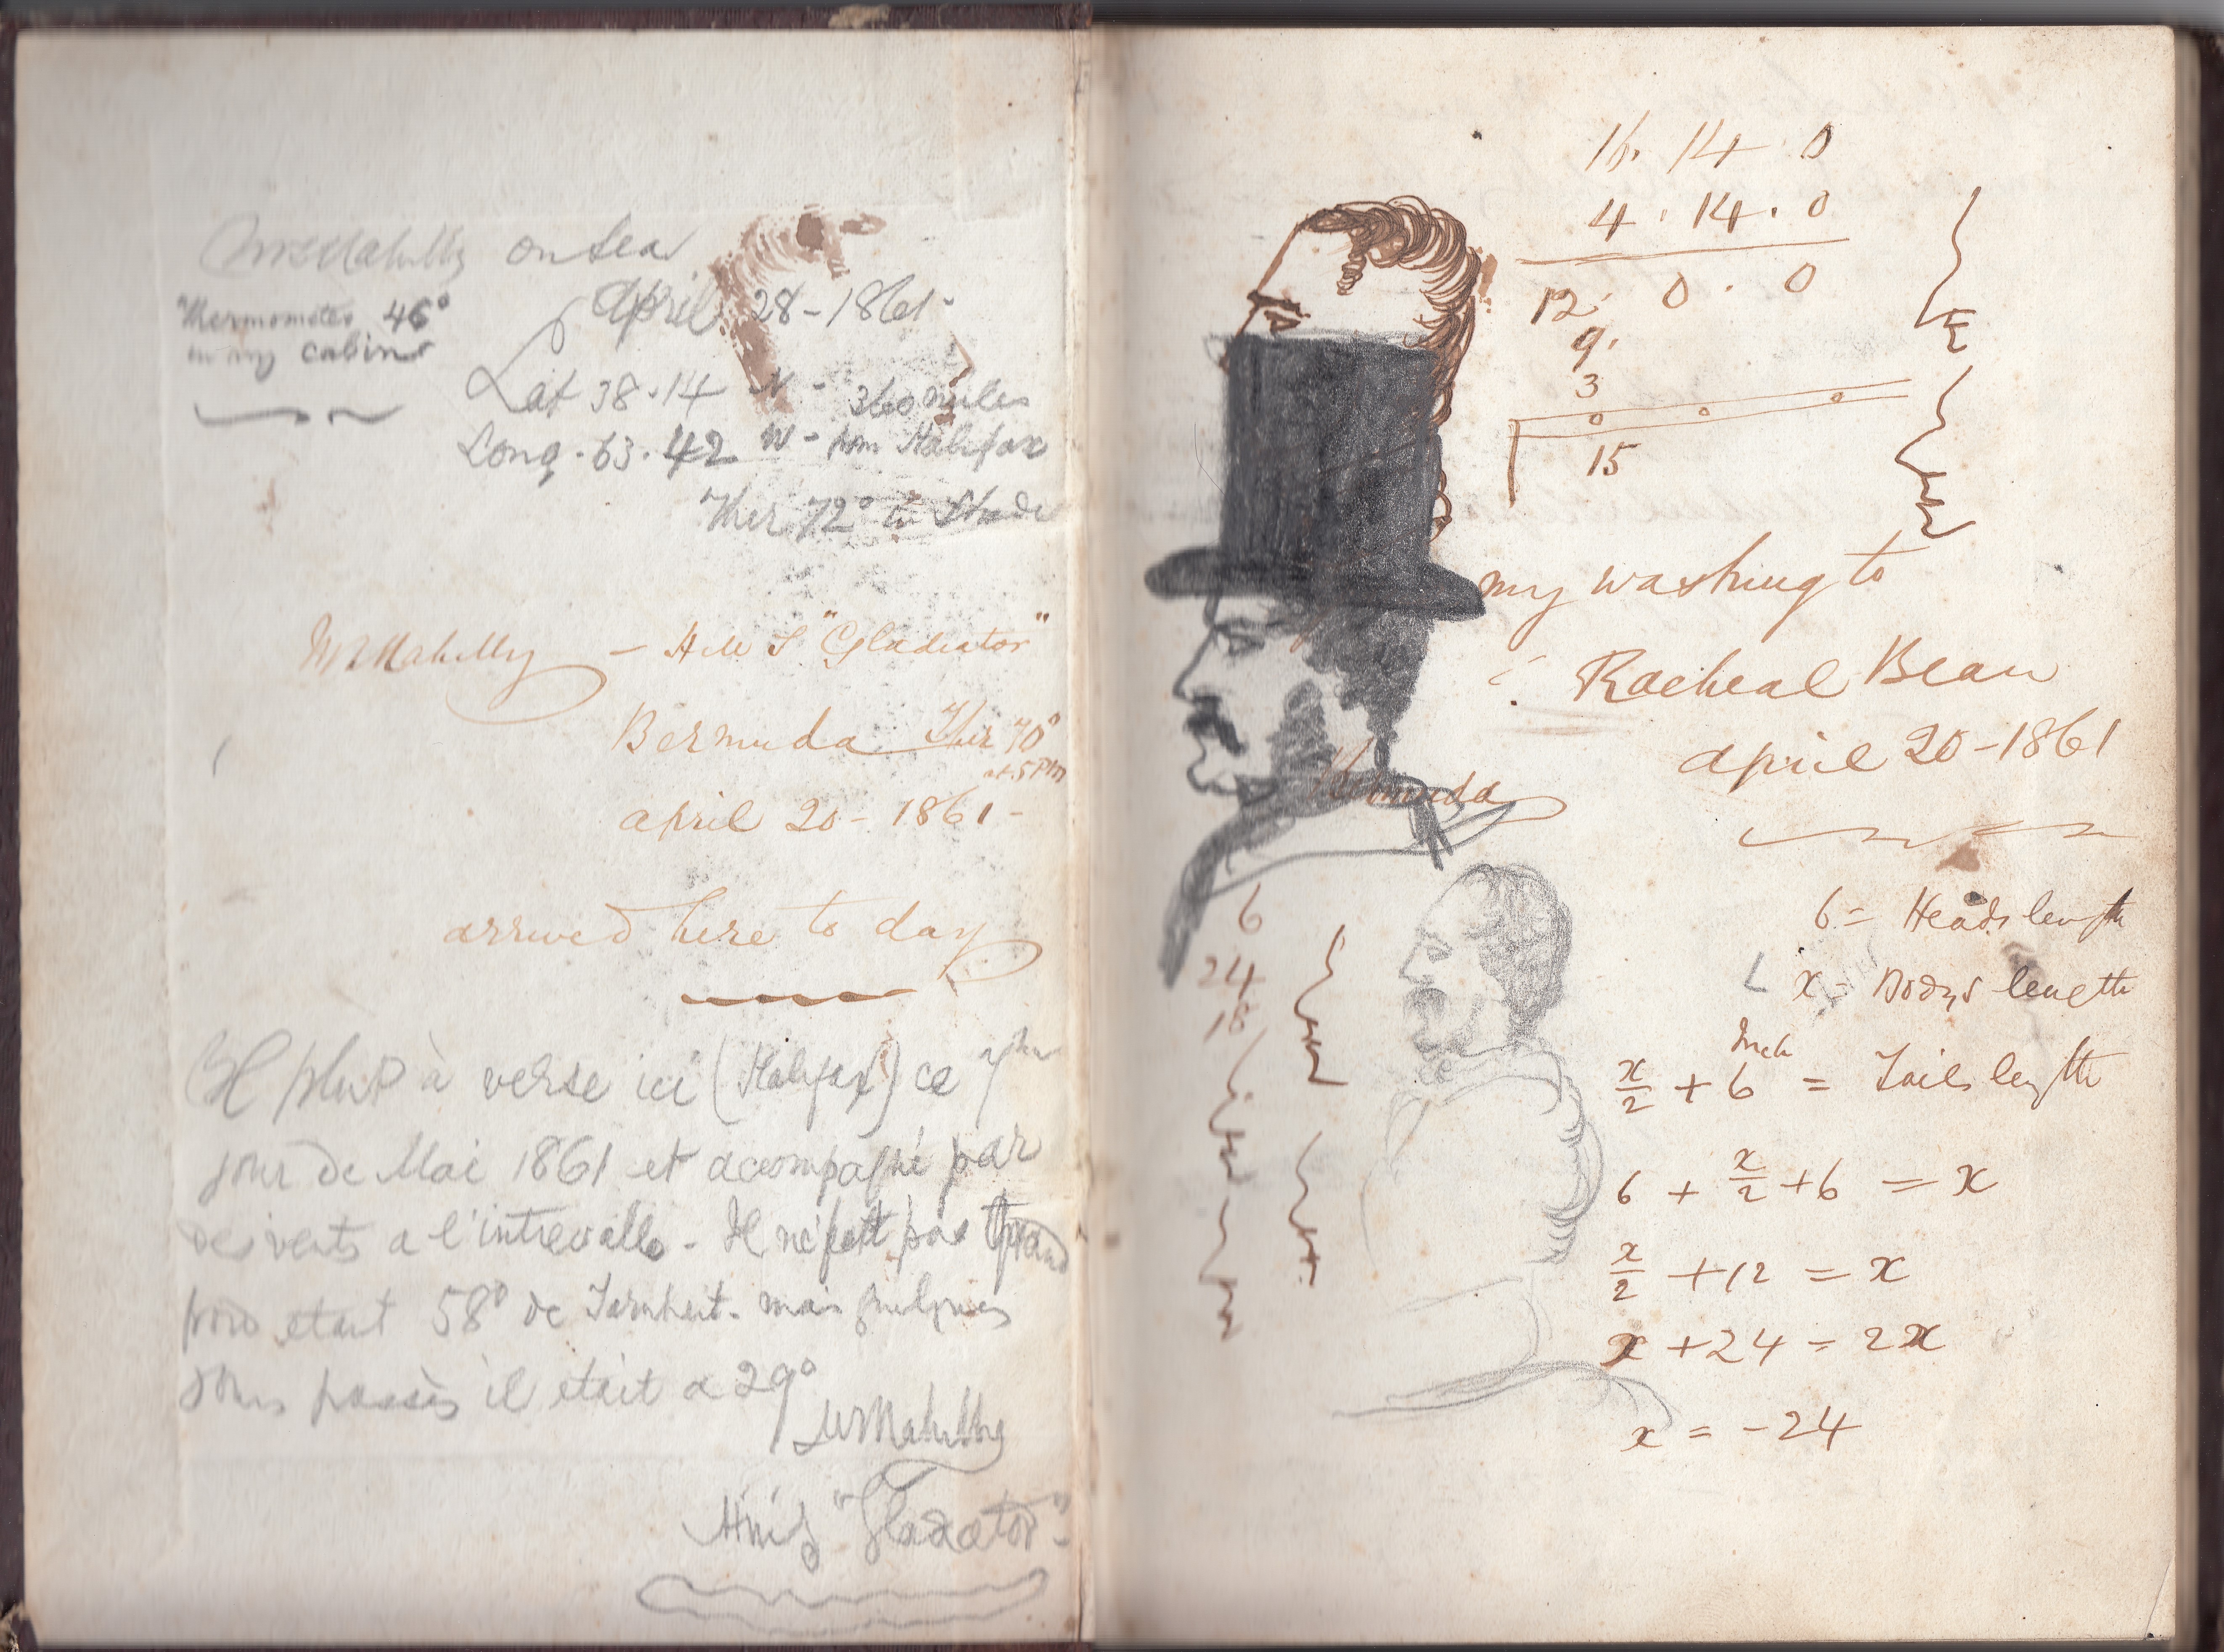 on Sea
April 28 - 1861 -
Thermometer 46°
in my cabin
Lat 38 . 14 N - 360 miles
Long . 63 . 42 W - from Halifax
Ther 72° in Shade
- HMS "Gladiator"
Bermuda Ther 70°
at 5 PM
april 20 - 1861 -
arrived here to day
Il plut à verse ici (Halifax) ce
jour de Mai 1861 et accompagné par
des vents a l'intrevalle - Il ne fait pas
froid etant 58° de Farnheit - mais quelques
jours passès il etait a 29°
HMS "Gladiator" -
16 . 14 . 0
4 . 14 . 0
12 . 0 . 0
9 .
3
0 0 0
15
my washing to
Racheal Bean
april 20 - 1861
Bermuda
6 = Heads length
x = Bodys length
Inch
x/2 + 6 = Tails length
6 + x/2 + 6 = x
x/2 + 12 = x
x + 24 = 2x
x = - 24
6
24
18